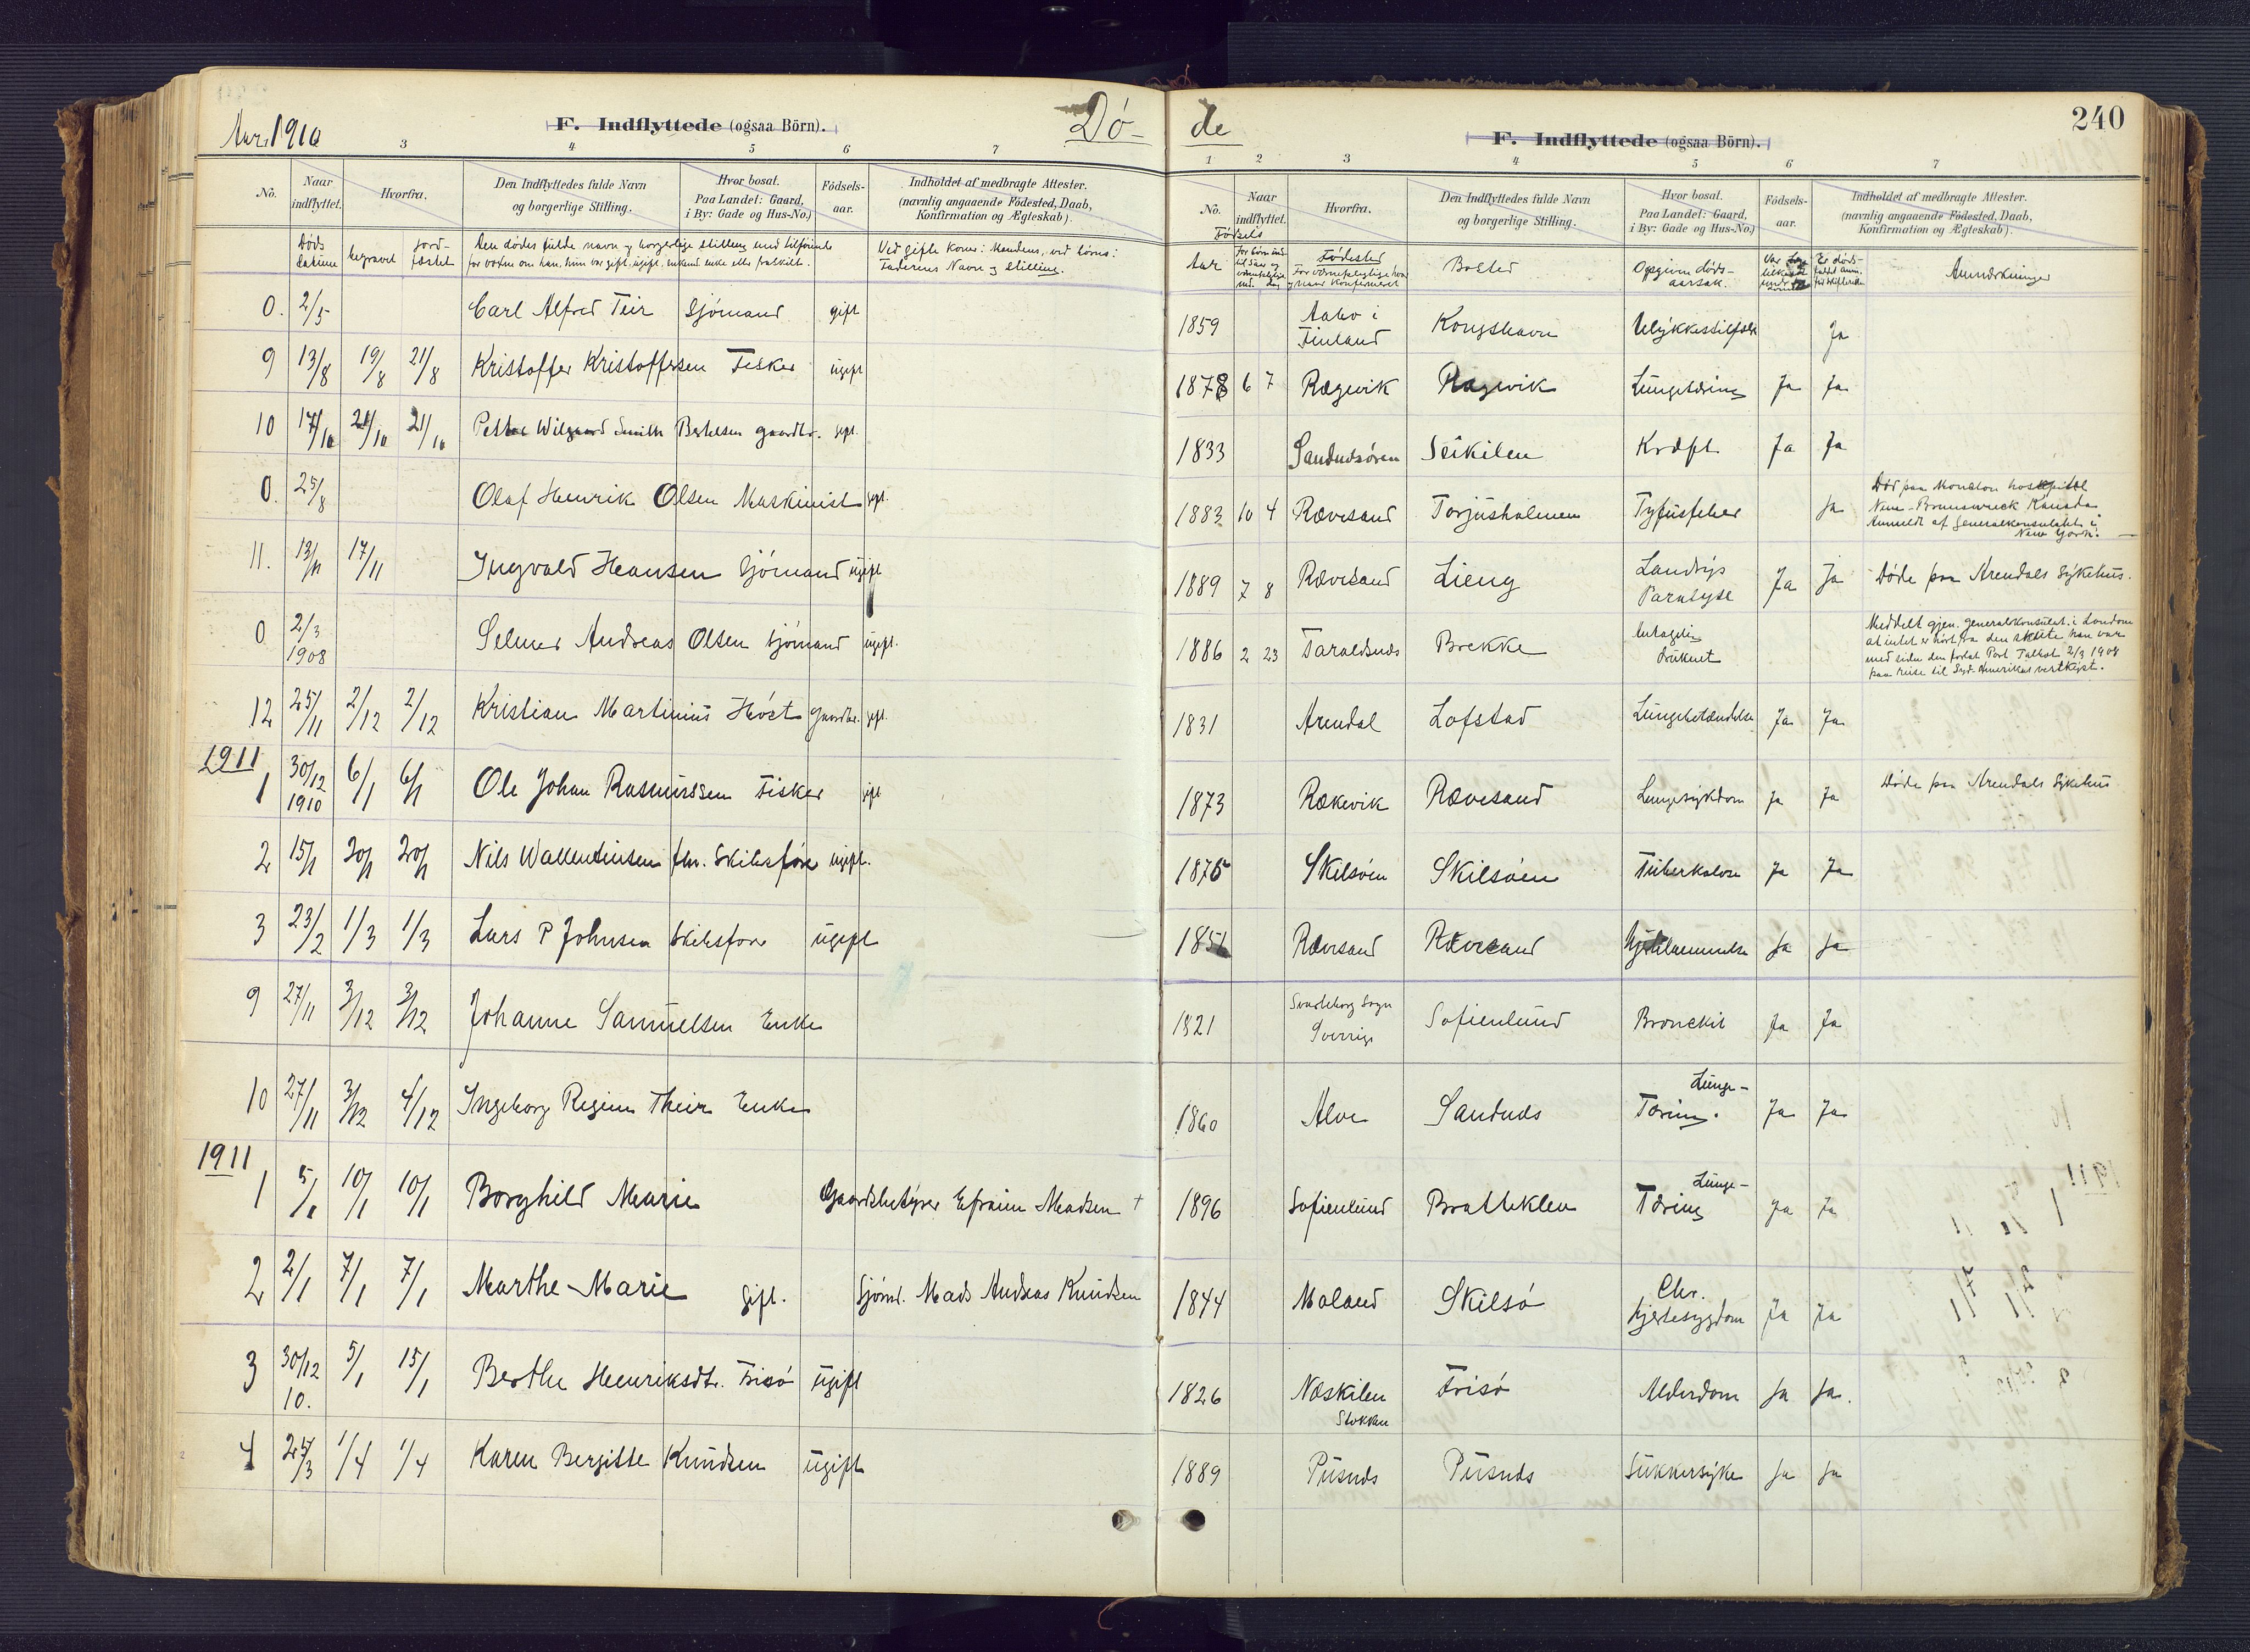 Aar. 1910
F. Indflyttede (ogsaa Börn).
Dö-
3 4 5 6 7
No. Naar indflyttet. Hvorfra. Den Indflyttedes fulde Navn og borgerlige Stilling. Hvor bosat. Paa Landet: Gaard, i By: Gade og Hus-No.) Födsels-aar. Indholdet af medbragte Attester. (navnlig angaaende Födested, Daab, Konfirmation og Ægteskab).
Döds datum begravet jord-fæstet Den dödes fulde navn og borgerlige stilling med tilföiende for voxne om han, hun var gift, ugift, enkemd. enke eller fraskilt. Ved gifte koner: Mandens, ved börns: Faderens Navn og stilling.
0. 2/5 Carl Alfred Teir Sjömand gift
9 13/8 19/8 21/8 Kristoffer Kristoffersen Fisker ugift
10 17/10 21/10 21/10 Petter Wilgaard Smith Bertelsen gaardbr. gift.
0. 25/8 Olaf Henrik Olsen Maskinist gift
11. 13/11 17/11 Ingvald Hansen Sjömand ugift
0 2/3 1908 Selmer Andreas Olsen sjömand ugift.
12 25/11 2/12 2/12 Kristian Martinius Höst gaardbr. gift.
1911
1 30/12 1910 6/1 6/1 Ole Johan Rasmussen Fisker gift
2 15/1 20/1 20/1 Nils Wallentinsen fhv. Skibsförer ugift.
3 23/2 1/3 1/3 Lars P Johnsen Skibsförer ugift
9 27/11 3/12 3/12 Johanne Samuelsen Enke
10 27/11 3/12 4/12 Ingeborg Regine Their Enke
1911
1 5/1 10/1 10/1 Borghild Marie Gaardbestyrer Efraim Madsen +
2 2/1 7/1 7/1 Marthe-Marie gift. Sjömd. Mads Andreas Knudsen
3 30/12 10. 5/1 15/1 Berthe Henriksdtr. Frisö ugift
4 25/3 1/4 1/4 Karen Bergitte Knudsen ugift
de
240
F. Indflyttede (ogsaa Börn).
1 2 3 4 5 6 7
No. Naar indflyttet. Hvorfra. Den Indflyttedes fulde Navn og borgerlige Stilling. Hvor bosat. Paa Landet: Gaard, i By: Gade og Hus-No.) Födsels-aar. Indholdet af medbragte Attester. (navnlig angaaende Födested, Daab, Konfirmation og Ægteskab).
Födsels Aar Födested For værnepligtige hvor og naar konfirmeret Bosted Opgiven döds-aarsak. Anmærkninger
1859 Aabo i Finland Kongshavn Ulykkestilfælde Ja
1878 6 7 Rægevik Rægevik Lungetæring Ja Ja
1833 Sandnæsören Seikilen Kræft Ja Ja
1883 10 4 Rævesand Torjusholmen Tyfusfeber Ja Död paa Moncton hospital New-Brunswreck Kanada. Anmeldt af Generalkonsulatet i New York.
1889 7 8 Rævesand Lieng Landrys Paralyse Ja Ja Döde paa Arendals Sykehus.
1886 2 23 Faraldsnæs Brekke Antagelig druknet Meddelt gjen. generalkonsulat. i London at intet er hört fra den skute han var med siden den forlot Port Talbot 2/3 1908 paa reise til Syd-Amerikas vestkyst.
1831 Arendal Lofstad Lungebetændelse Ja Ja
1873 Rækevik Rævesand Lungesykdom Ja Ja Döde paa Arendals Sykehus
1875 Skilsöen Skilsöen Tuberkulose Ja Ja
1851 Rævesand Rævesand Hjertelammelse Ja Ja
1821 Svarteborg Sogn Sverrige Sofienlund Bronckit Ja Ja
1860 Alve Sandnæs Lunge-Tæring. Ja Ja
1896 Sofienlund Bratteklev Lunge-Tæring Ja Ja
1844 Moland Skilsö Chr. hjertesygdom Ja Ja
1826 Næskilen Stokken Frisö Alderdom Ja Ja.
1889 Pusnæs Pusnæs Sukkersyke Ja Ja